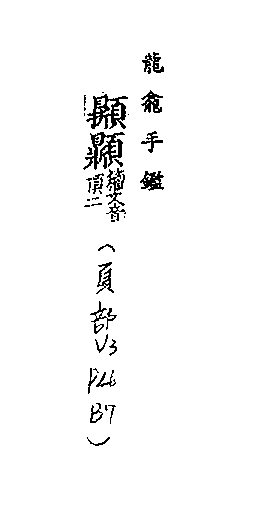 龍龕手鑑
𩕢籀文音頂二（頁部V3 P46 B7）